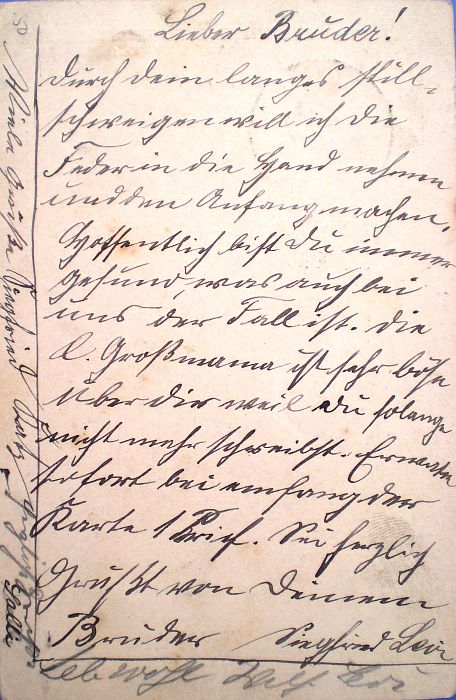 Lieber Bruder!
durch dein langes still-
schweigen will ich die
Feder in die Hand nehmen
und den Anfang machen.
Hoffentlich bist du immer
gesund, was auch bei
uns der Fall ist. die
l. Großmama ist sehr böse
über dir weil du solange
nicht mehr schreibst. Erwarte
sofort bei empfang der
Karte 1 Brief. Sei herzlich
Grüßt von Deinem
Bruder Siegfried
Leb wohl
Viele Grüße